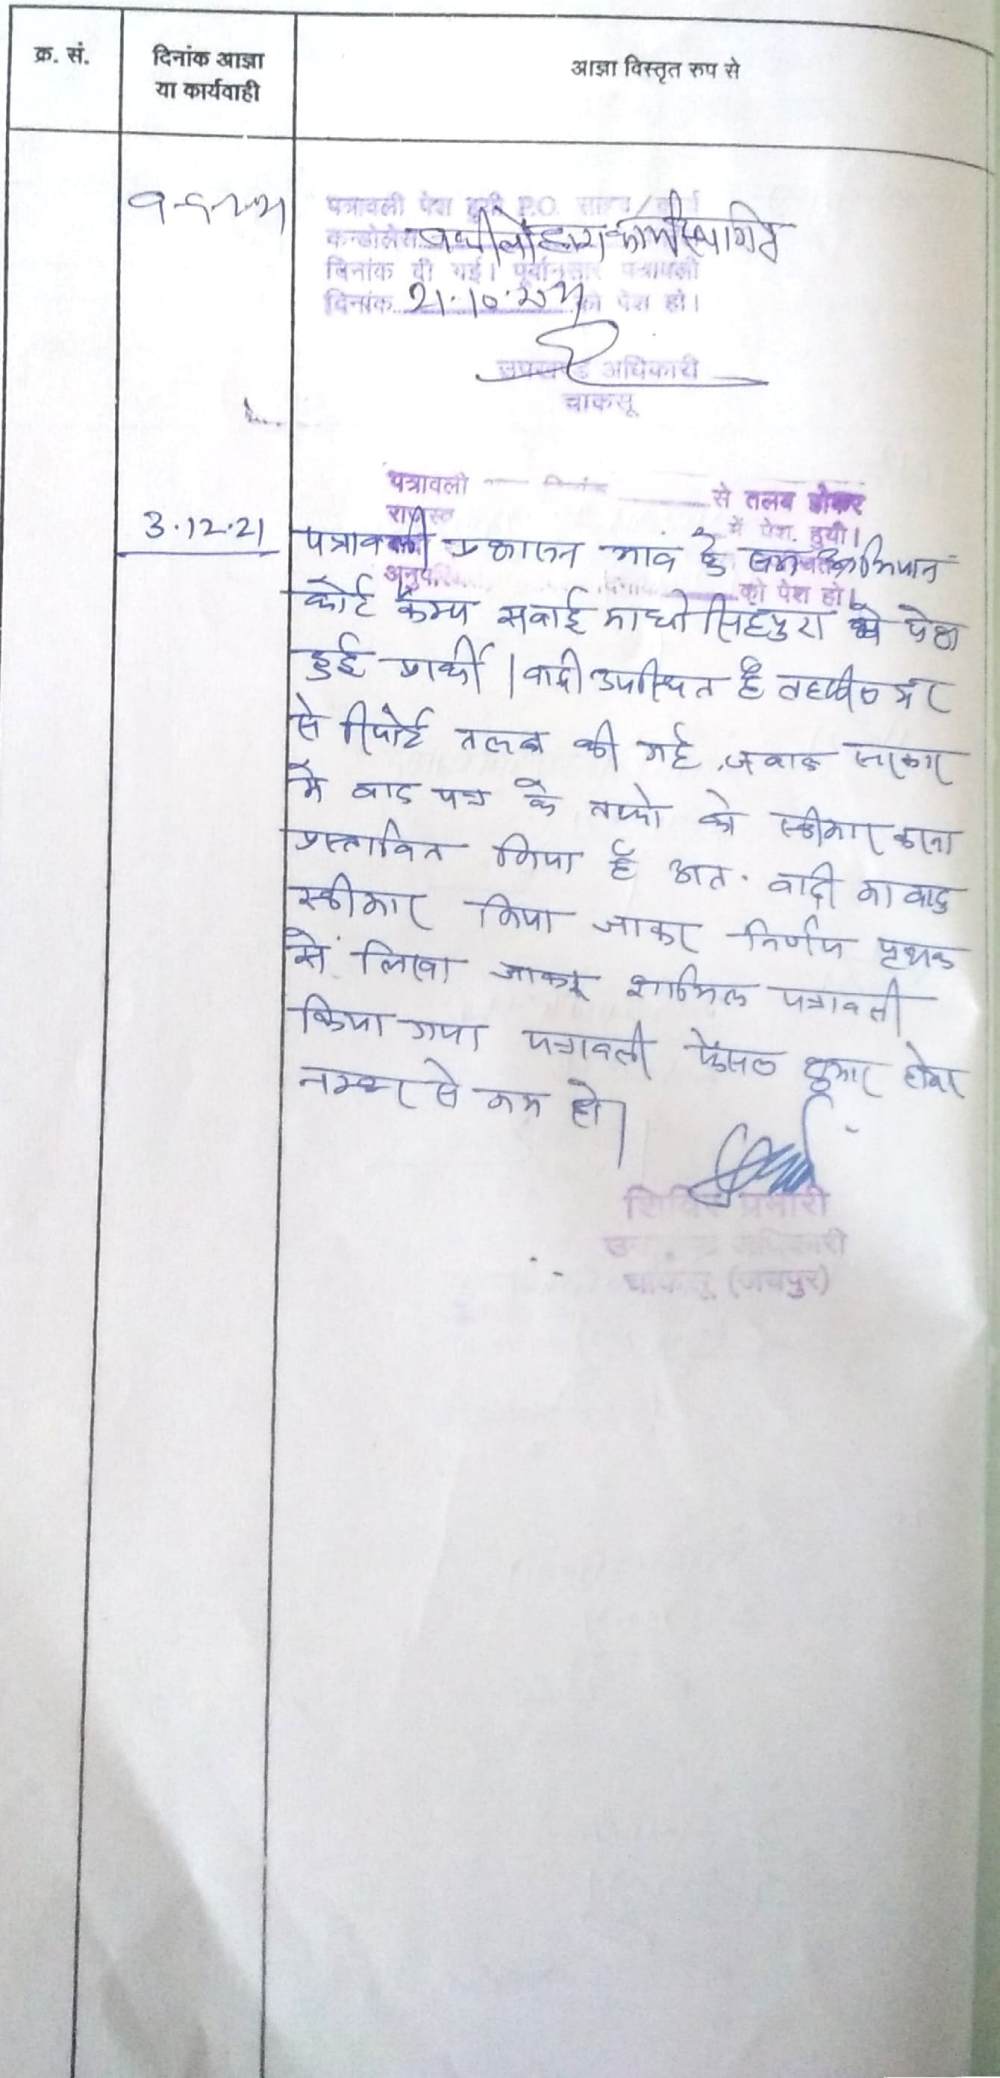 क्र. सं.
दिनांक आज्ञा
या कार्यवाही
आज्ञा विस्तृत रुप से
पत्रावली पेश हुयी P.O.
कन्डोलेंस
दिनांक दी गई। पूर्वानुसार पत्रावली
दिनांक 21.10.2021 को पेश हो।
उपखण्ड अधिकारी
चाकसू
पत्रावली दिनांक से तलब होकर
में पेश हुयी।
को पेश हो।
3.12.21
पत्रावली प्रशासन गांव के संग अभियान
कोर्ट कैम्प सवाई माधोसिंहपुरा में पेश
हुई वादी उपस्थित है तहसीलदार
से रिपोर्ट तलब की गई जवाब सरकार
में वाद पत्र के तथ्यो को स्वीकार करना
प्रस्तावित किया है अत. वादी का वाद
स्वीकार किया जाकर निर्णय पृथक
से लिखा जाकर शामिल पत्रावली
किया गया पत्रावली फैसल शुमार होकर
नम्बर से कम हो।
शिविर प्रभारी
उपखण्ड अधिकारी
चाकसू (जयपुर)